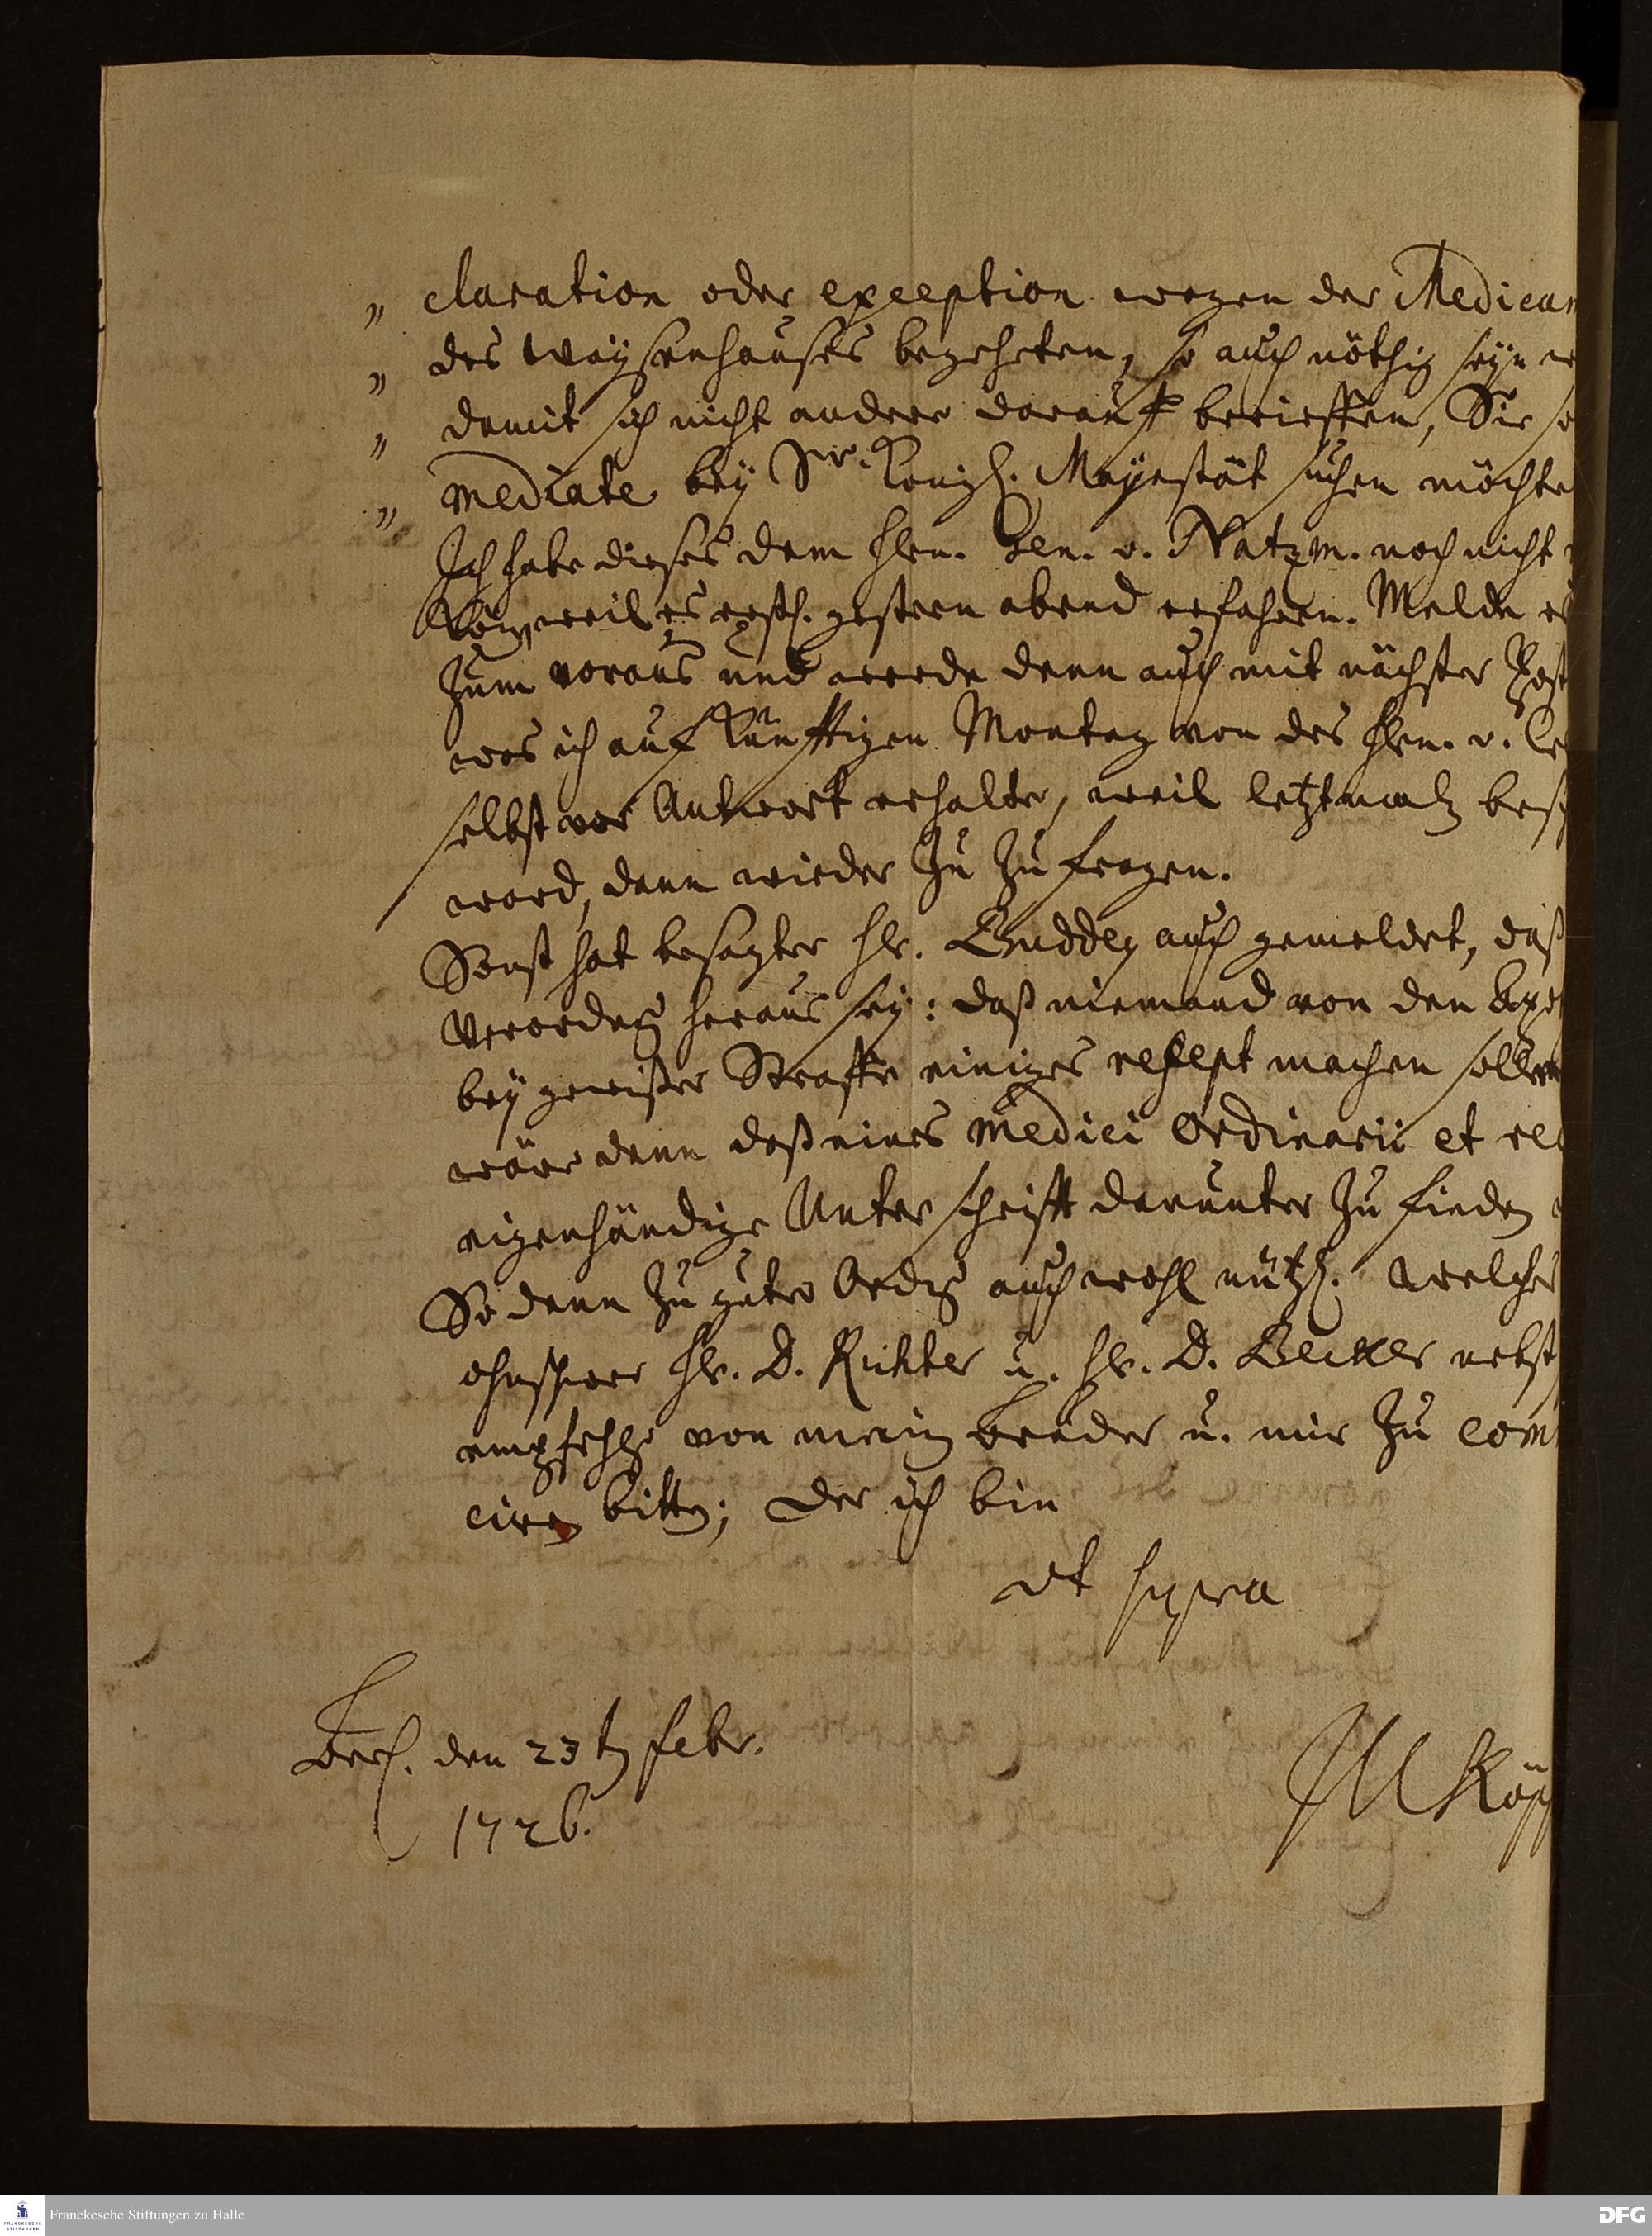 " claration oder exception wegen der Medica
" des Waysenhauses begehrten, so auch nöthig seyn
" damit sich nicht andere darauf berieffen, Sie
" mediate bey Sr. Königl. Mayestät suchen möchte
Ich habe dieses dem Hrn. Gen. v. Natzm. noch nicht
weil es erstl. gestern abend erfahren. Melde
zum voraus und werde denn auch mit nächster Post
was ich auf künfftigen Montag von des Hrn. v.
selbst vor Antwort erhalte, weil letztmals
word, dann wieder zu zu fragen.
Sonst hat besagter Hr. Buddeg auch gemeldet, daß
Verordng heraus sey: daß niemand von den
bey gewißer Straffe einiges recept machen sollte
wäre denn daß eines Medici Ordinarii et
eigenhändige Unterschrifft darunter zu finden
So denn zu guter Ordng auch wohl nützl. welches
ohnschwer Hr. D. Richter u. Hr. D. Becker nebst
empfehlg von mein Bruder u. mir zu com
ciren bitte; der ich bin
ut supra
Berl. den 23ten Febr.
1726.
JM Köpp
Franckesche Stiftungen zu Halle
DFG